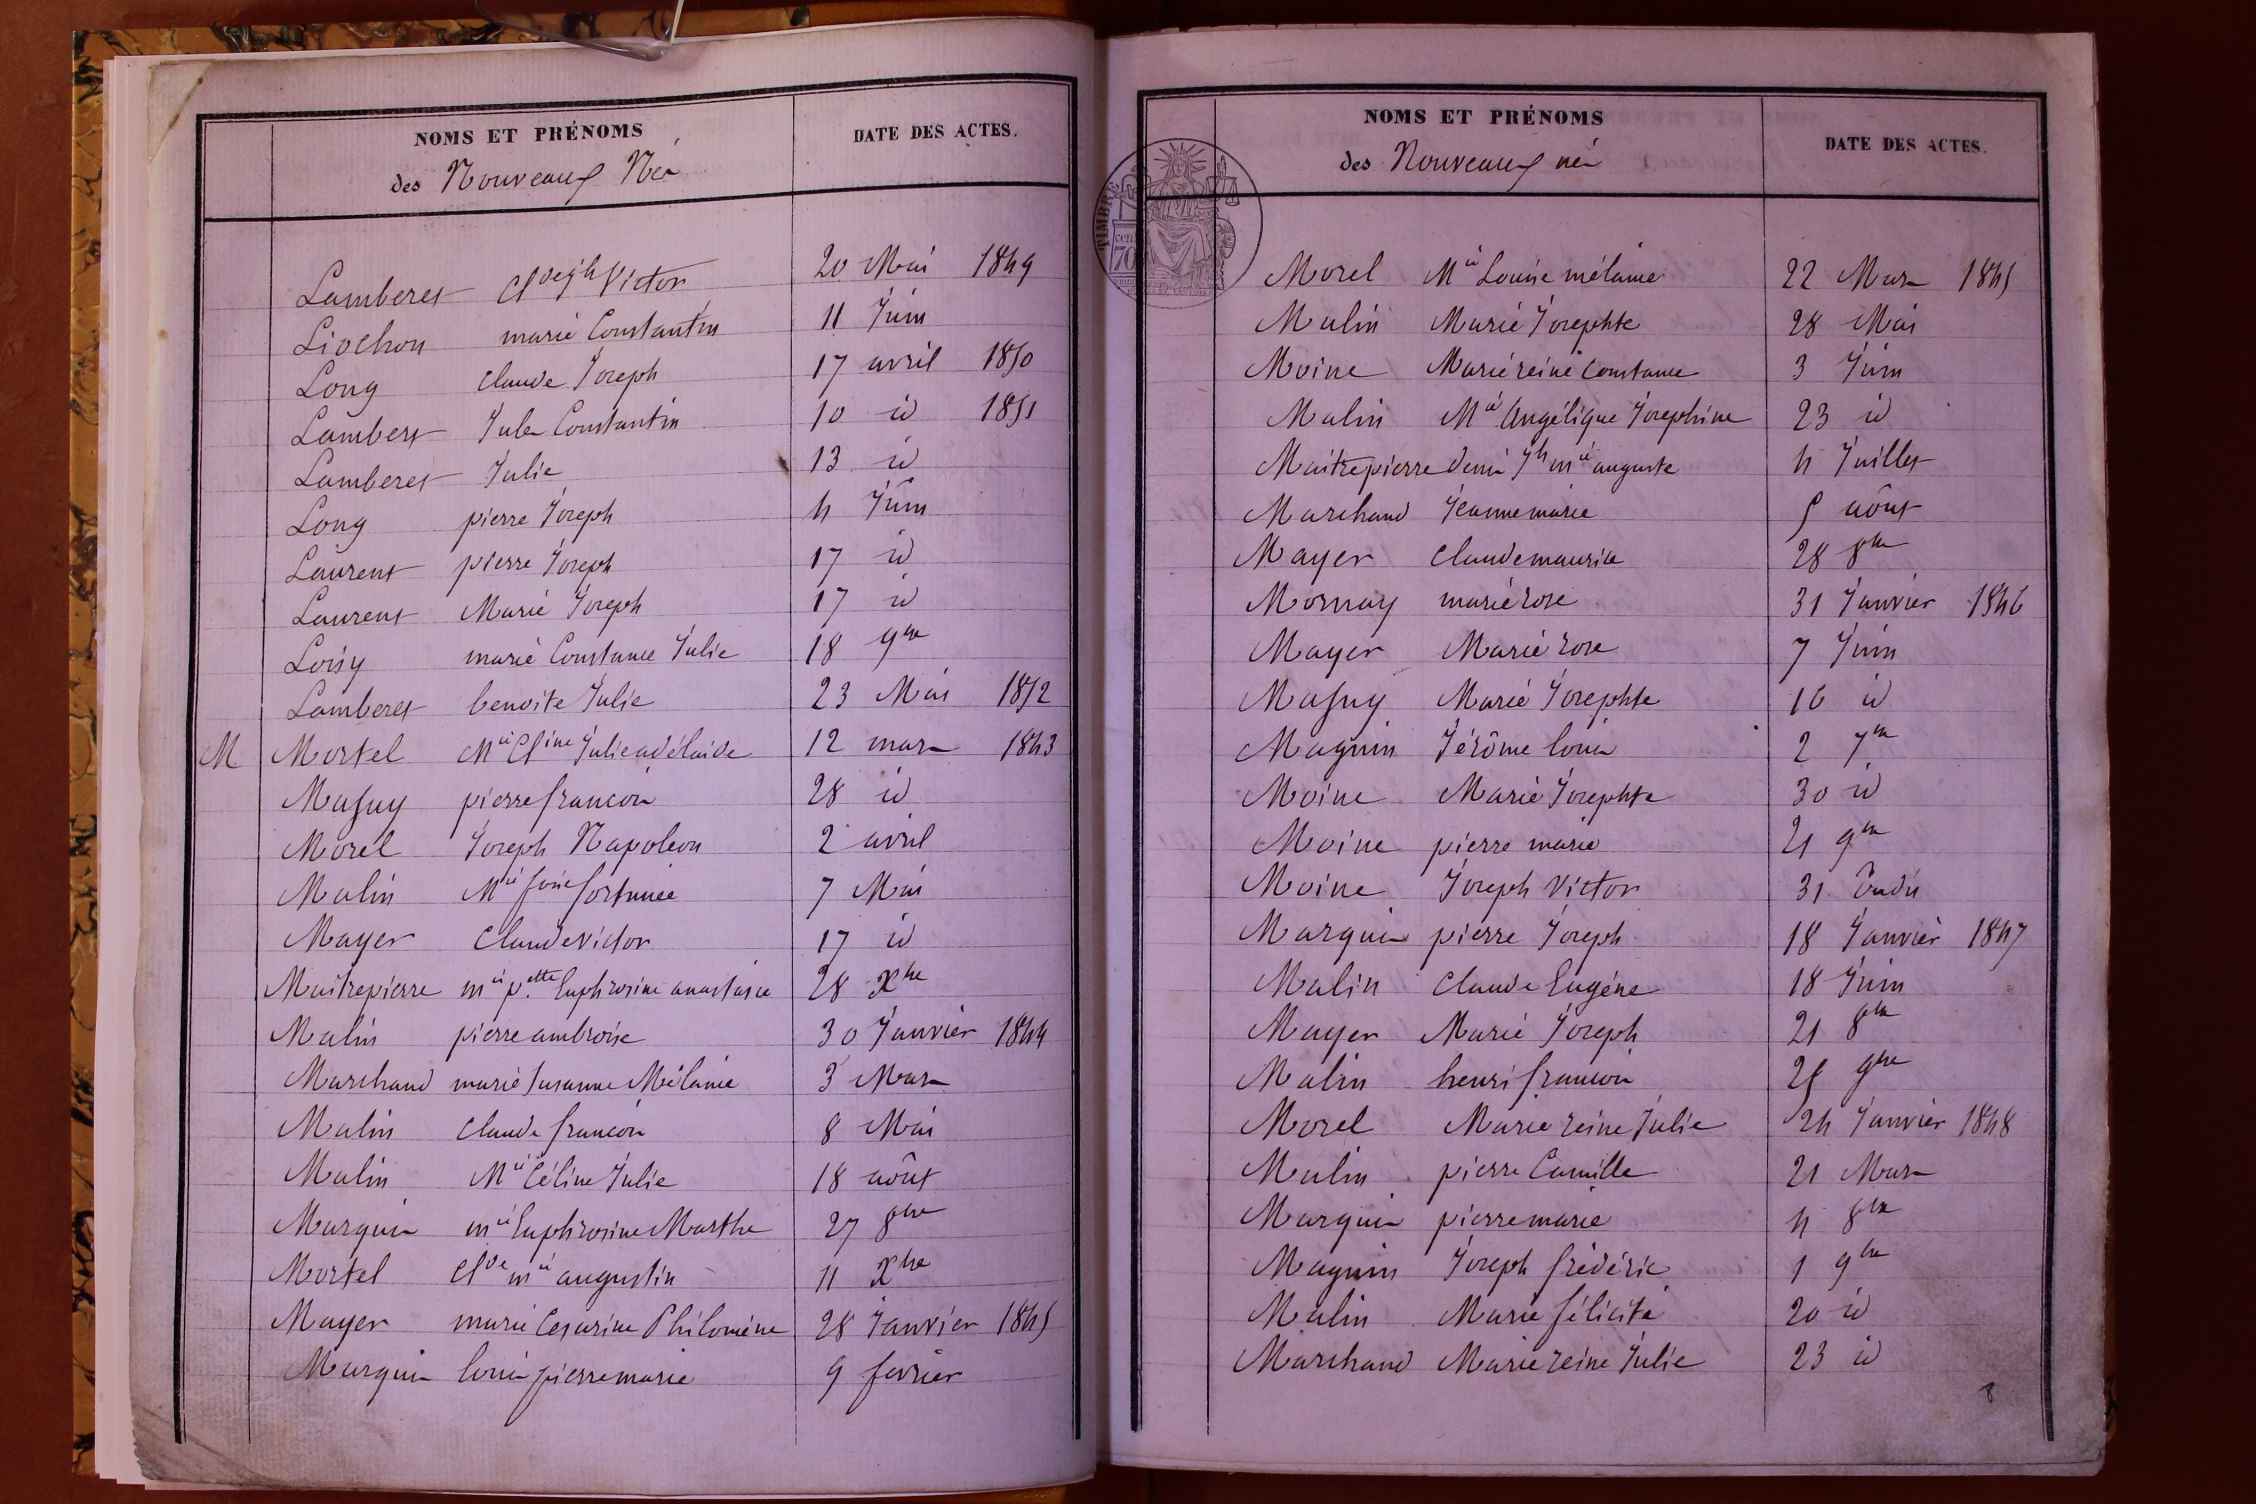 NOMS ET PRÉNOMS
DATE DES ACTES.
des Nouveaux Nés
Lamberet Cl de Jh Victor 20 Mai 1849
Liochon marie Constantin 11 Juin
Long claude Joseph 17 avril 1850
Lambert Jules Constantin 10 id 1851
Lamberet Julie 13 id
Long pierre Joseph 4 Juin
Laurent pierre Joseph 17 id
Laurent Marie Joseph 17 id
Loisy marie Constance Julie 18 9bre
Lamberet benoite Julie 23 Mai 1852
M Mortel Mie Cl ine Julie adélaide 12 mars 1843
Massuy pierre francois 28 id
Morel Joseph Napoleon 2 avril
Malin Mie fortunée 7 Mai
Mayer Claude victor 17 id
Maitrepierre mie p.ette Euphrosine anastasie 28 Xbre
Malin pierre ambroise 30 Janvier 1844
Marchand marie Susanne Mélanie 3 Mars
Malin Claude francois 8 Mai
Malin Mie Céline Julie 18 août
Marguin mie Euphrosine Marthe 27 8bre
Mortel Cl de mie augustin 11 Xbre
Mayer marie Cesarine Philomène 28 Janvier 1845
Marguin louis pierre marie 9 fevrier
NOMS ET PRÉNOMS
DATE DES ACTES.
des Nouveaux nés
TIMBRE
cent
70
Morel Mie Louise mélanie 22 Mars 1845
Malin Marie Josephte 28 Mai
Moine Marie reine Constance 3 Juin
Malin Mie Angélique Josephine 23 id
Maitrepierre denis Jh mie auguste 4 Juillet
Marchand Jeanne marie 5 août
Mayer Claude maurice 28 8bre
Mornay marie rose 31 Janvier 1846
Mayer Marie rose 7 Juin
Massuy Marie Josephte 16 id
Maguin Jérôme louis 2 7bre
Moine Marie Josephte 30 id
Moine pierre marie 21 9bre
Moine Joseph Victor 31 dudit
Marguin pierre Joseph 18 Janvier 1847
Malin Claude Eugéne 18 Juin
Mayer Marie Joseph 21 8bre
Malin henri francois 25 9bre
Morel Marie reine Julie 24 Janvier 1848
Malin pierre Camille 21 Mars
Marguin pierre marie 4 8bre
Maguin Joseph frédéric 1 9bre
Malin Marie félicité 20 id
Marchand Marie reine Julie 23 id
8